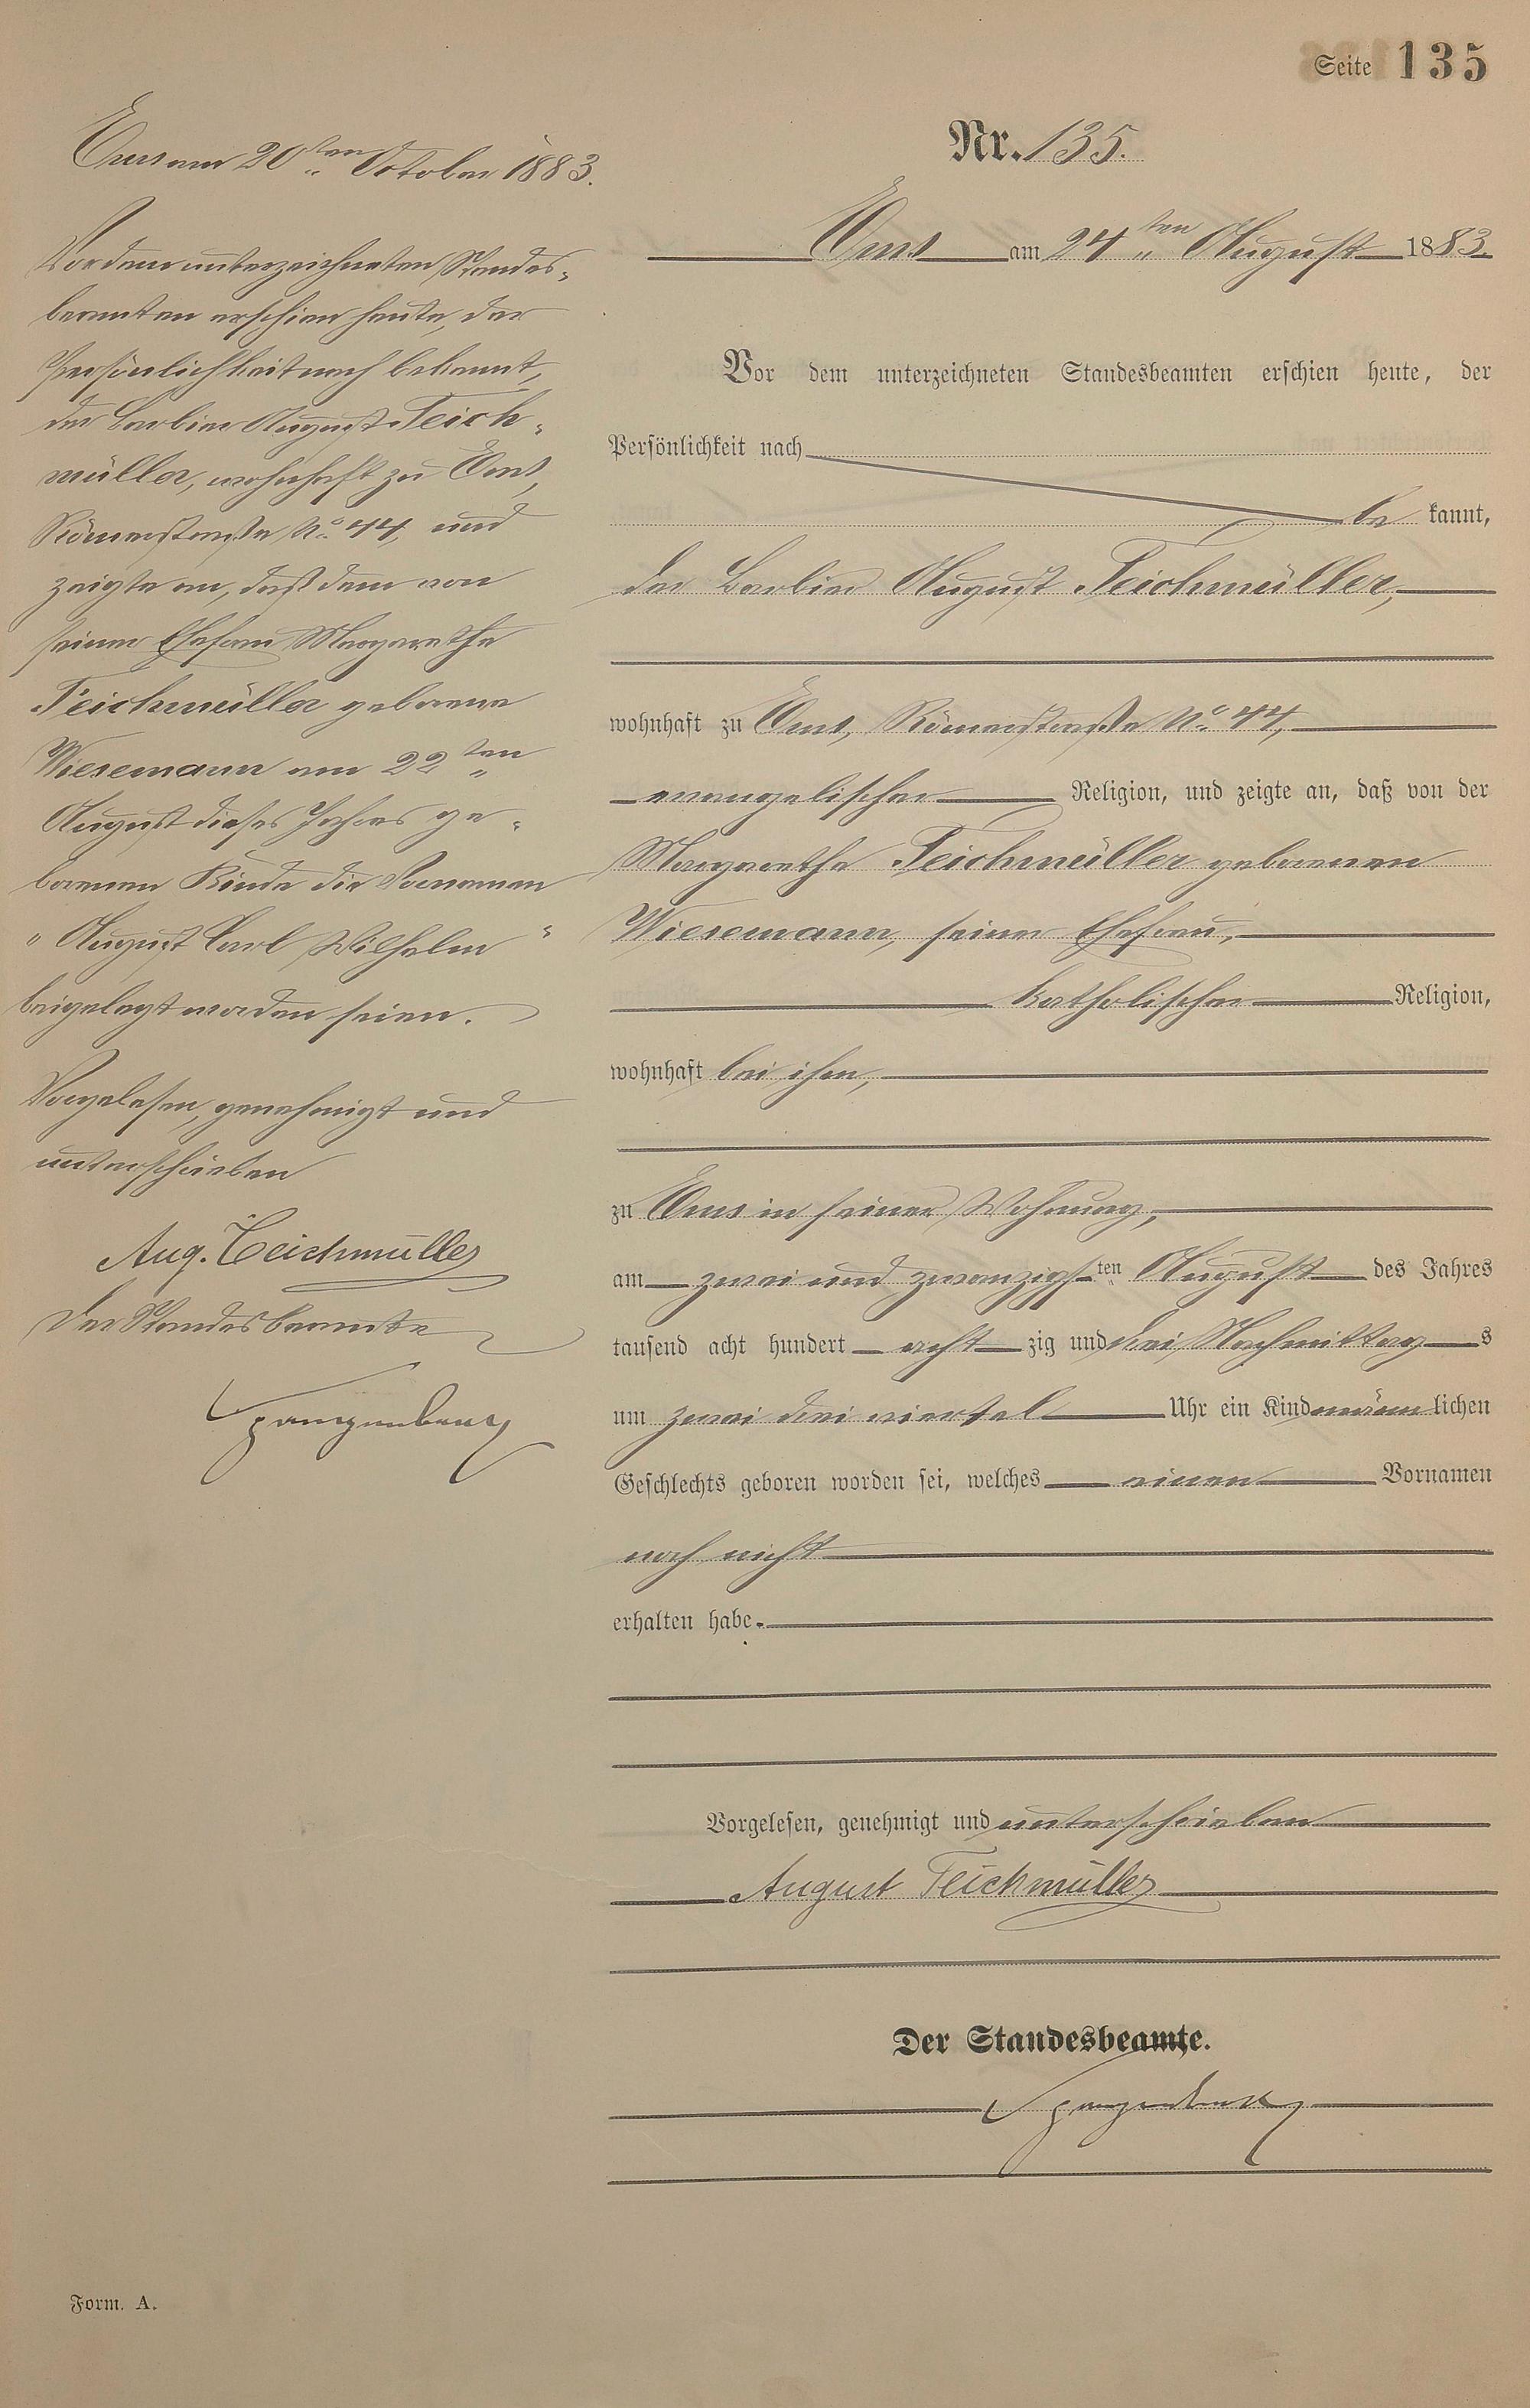 Seite 135
Nr. 135.
Ems am 24ten August 1883.
Vor dem unterzeichneten Standesbeamten erschien heute, der
Persönlichkeit nach
be kannt,
der Barbier August Teichmüller,
wohnhaft zu Ems, Römerstraße No 44,
evangelischer Religion, und zeigte an, daß von der
Margarethe Teichmüller geborenen
Wiesemann, seiner Ehefrau,
katholischer Religion,
wohnhaft bei ihm,
zu Ems in seiner Wohnung,
am zwei und zwanzigsten August des Jahres
tausend acht hundert acht zig und drei Nachmittags
um zwei drei viertel Uhr ein Kind männlichen
Geschlechts geboren worden sei, welches einen Vornamen
noch nicht
erhalten habe.
Vorgelesen, genehmigt und unterschrieben
August Teichmüller
Der Standesbeamte.
Spangenberg
Ems am 20ten October 1883.
Vor dem unterzeichneten Standes-
beamten erschien heute, der
Persönlichkeit nach bekannt,
der Barbier August Teich-
müller, wohnhaft zu Ems,
Römerstraße No 44, und
zeigte an, daß dem von
seiner Ehefrau Margarethe
Teichmüller geborene
Wiesemann am 22ten
August dieses Jahres ge-
borenen Kinde die Vornamen
"August Carl Wilhelm"
beigelegt worden seien.
Vorgelesen, genehmigt und
unterschrieben
Aug. Teichmüller
Der Standesbeamte
Spangenberg
Form. A.